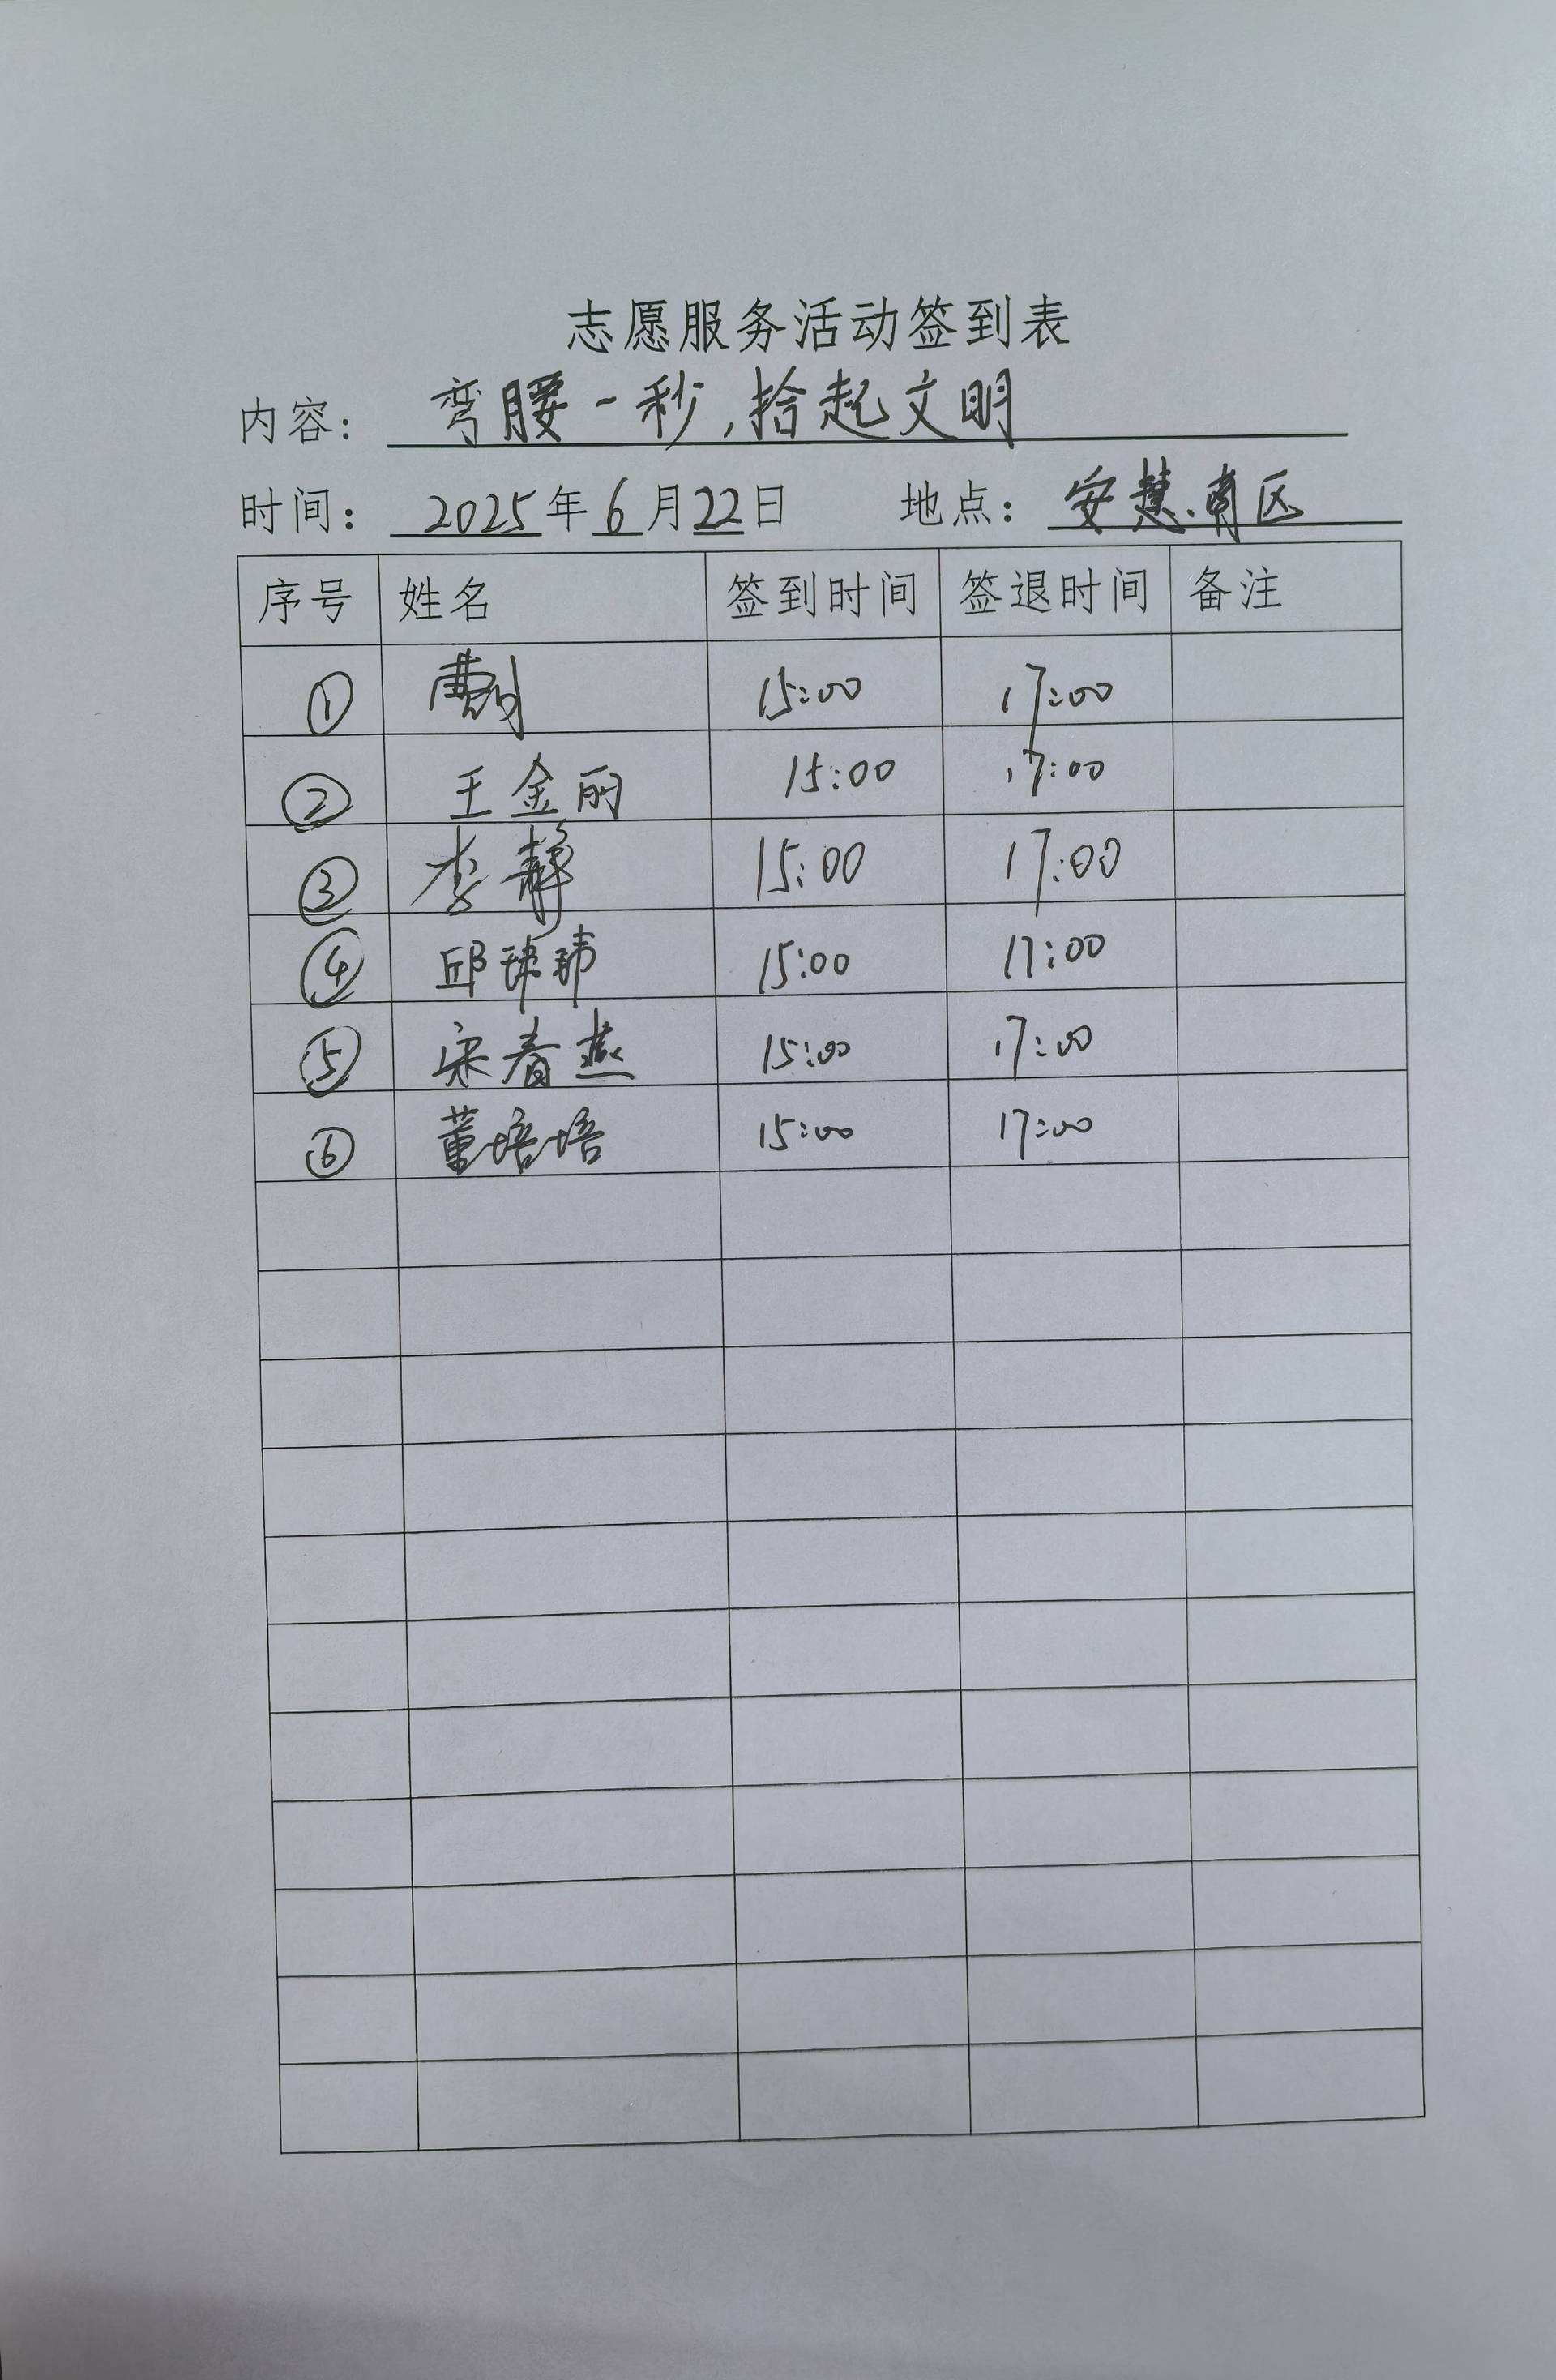 志愿服务活动签到表
内容： 弯腰一秒,拾起文明
时间： 2025年6月22日 地点： 安慧南区
序号 姓名 签到时间 签退时间 备注
① 曹 15:00 17:00
② 王金丽 15:00 17:00
③ 李静 15:00 17:00
④ 邱玮玮 15:00 17:00
⑤ 宋春燕 15:00 17:00
⑥ 董培培 15:00 17:00